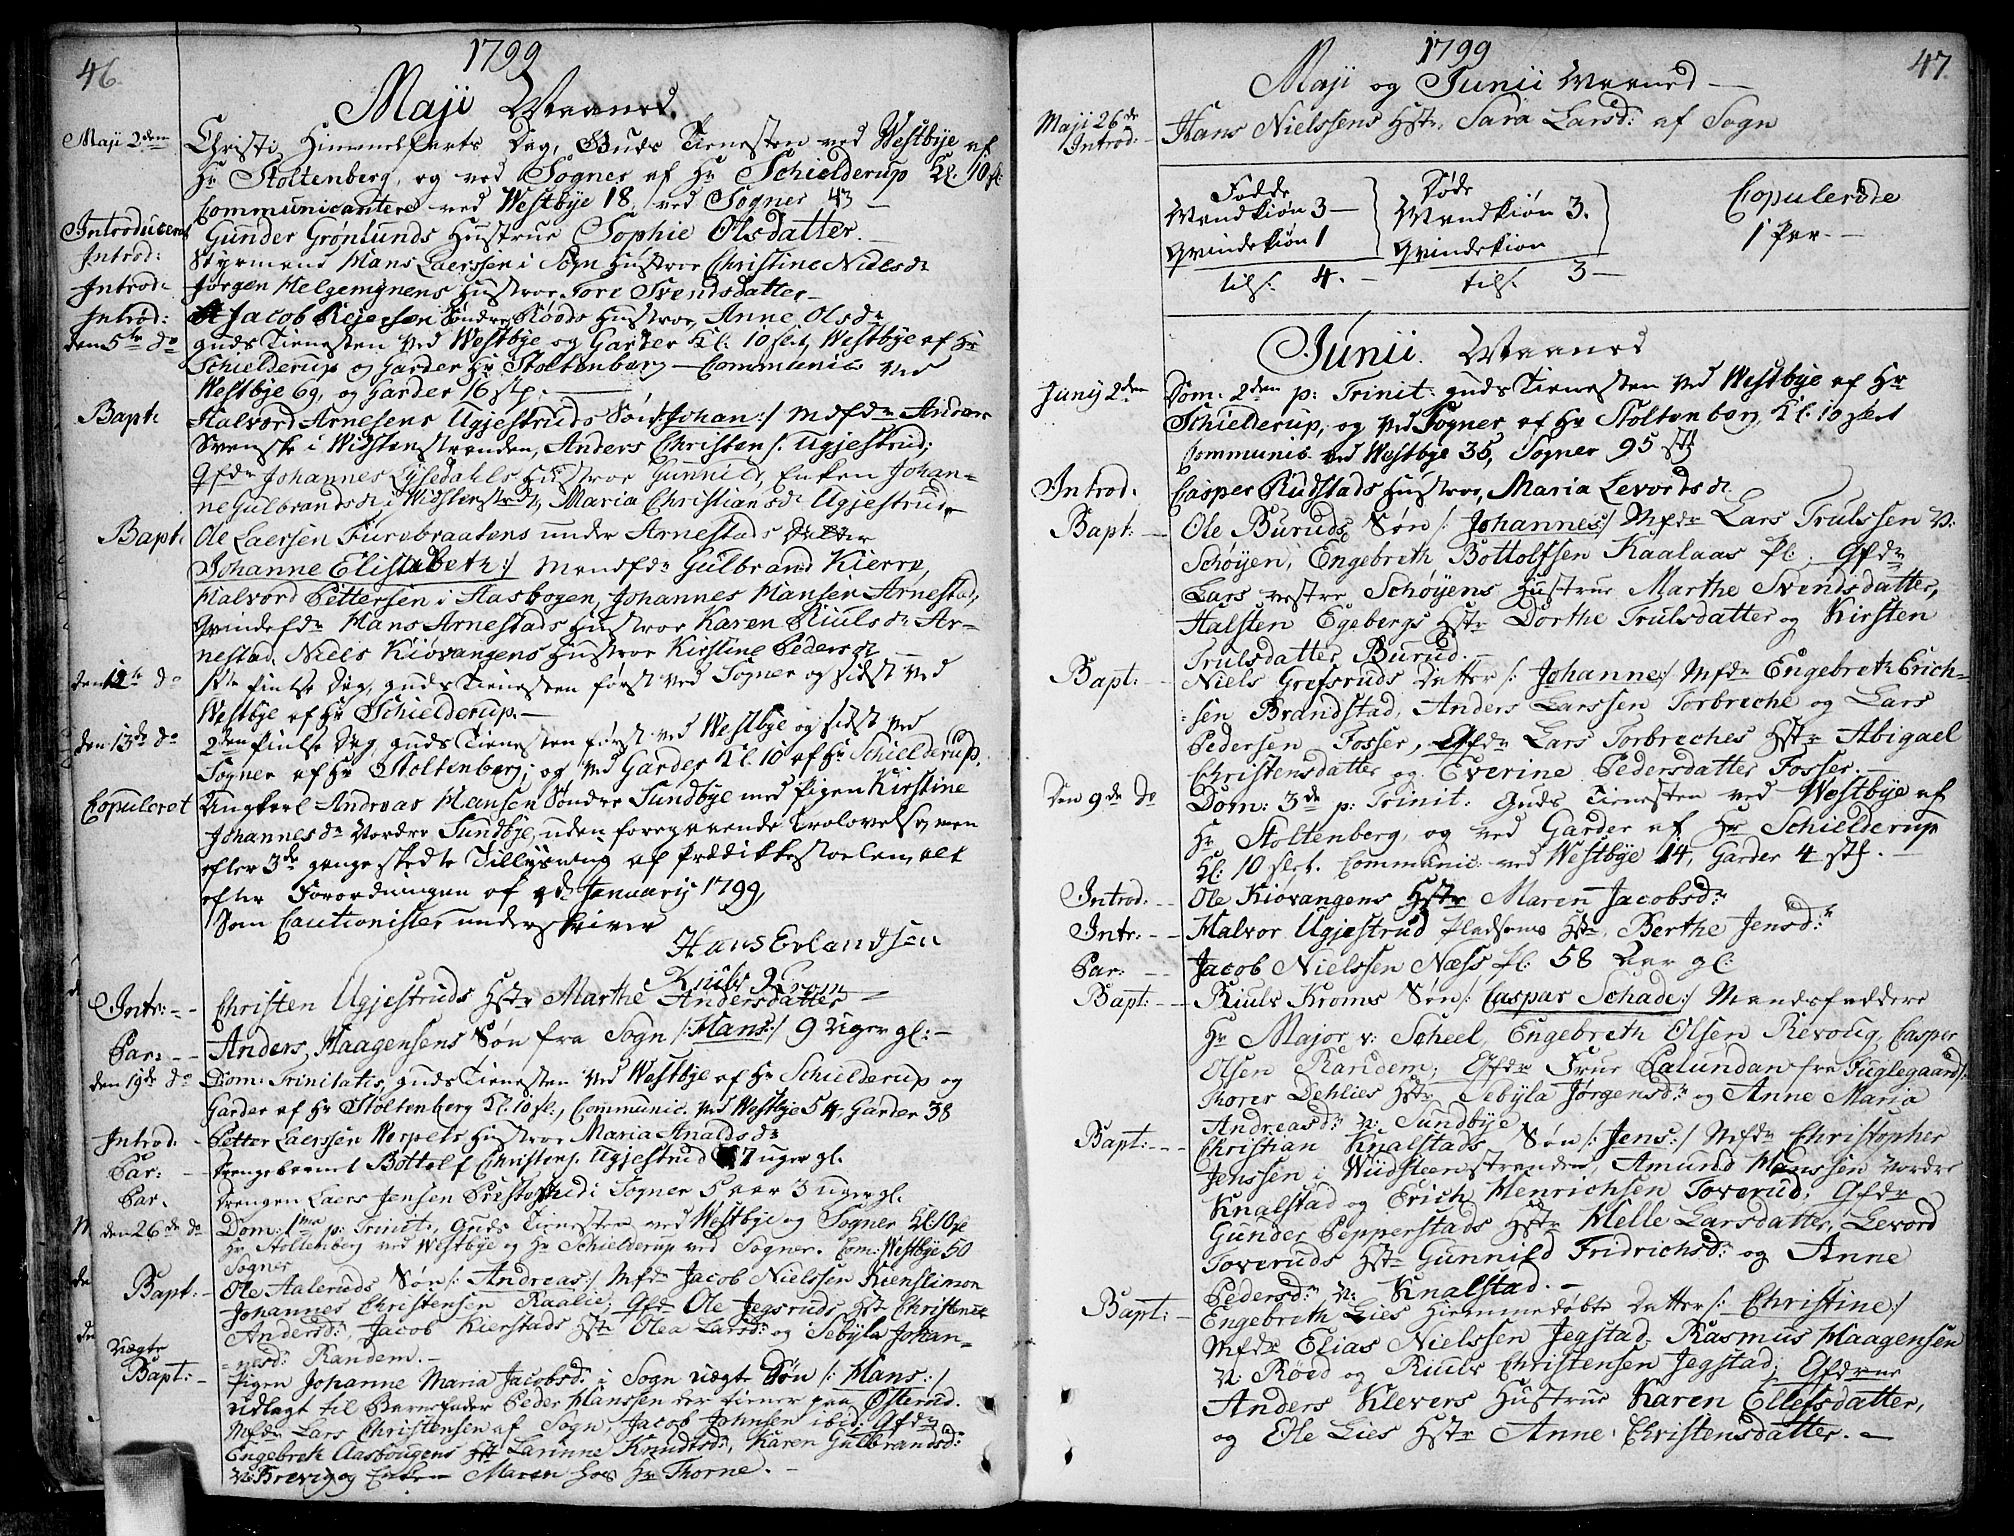 46.
1799
Maji Maaned.
Maji 2den Christi Himmelfarts Dag, Guds Tienesten ved Westbye af
Hr Stoltenberg, og ved Sogner af Hr Schielderup Kl. 10 sl
Communicantere ved Westbye 18, ved Sogner 43 —
Introduceret Gunder Grønlunds Hustrue Sophie Olsdatter. —
Introd: Styrmand Hans Laerssen i Sogn Hustroe Christine Nielsdr
Introd: Jørgen Helgemÿnens Hustroe Tore Svendsdatter —
Introd: Jacob Søndre Røøds Hustroe, Anne Olsdr
den 5te do Guds Tienesten ved Westbye og Garder Kl. 10 slet, Westbye af Hr
Schielderup og Garder Hr Stoltenberg — Communic ved
Westbye 69, og Garder 16 stp. —
Bapt: Halvord Arnesens Ugjestruds Søn /:Johan:/ Mdfdr Andreas
Svenske i Widstenstranden, Anders Christens. Ugjestrud;
Qfdr Johannes Lysedahls Hustroe Gunnild, Enken Johan-
ne Gulbrandsdr i Widstenstrd, Maria Christiansdr Ugjestrud
Bapt: Ole Laersen Furubraatens under Arnestads Datter
Johanne Elisabeth:/ Mandfdr Gulbrand Kierre,
Halvord Pettersen i Aasbogen, Johannes Hansen Arnestad,
Qvindefdr Hans Arnestads Hustroe Karen Riulsdr Ar-
nestad, Niels Kiøvangens Hustroe Kirstine Pedersdr —
den 12te do 1ste Pintse Dag, Guds Tienesten først ved Sogner og sidst ved
Westbye af Hr Schielderup. —
den 13de do 2den Pintse Dag, Guds Tienesten først ved Westbye og sidst ved
Sogner af Hr Stoltenberg; og ved Garder Kl. 10 af Hr Schielderup.
Copuleret Ungkarl Andreas Hansen Søndre Sundbye med Pigen Kirstine
Johannesdr Nordre Sundbye, uden foregaaende Trolovelse, men
efter 3de gange skedte Tillysning af Prædikkestoelen, alt
efter Forordningen af Januarij 1799,
Som Cautionister underskriver
Hans Erlandsen
Knibs Krom
Intr: — Christen Ugjestruds Hstr Marthe Andersdatter —
Par: — Anders Haagensens Søn fra Sogn /:Hans:/ 9 Uger gl: —
den 19de do Dom: Trinitatis, Guds Tienesten ved Westbye af Hr Schielderup og
Garder af Hr Stoltenberg Kl. 10 sl., Communic. ved Westbye 54 Garder 38
Introd. Petter Laerssen Werpets Hustroe Maria Analdsdr
Par: Drengebarnet Bottolf Christens. Ugjestrud 7 uger gl.
Par. Drengen Laers Jensen i Sogner 5 aar 3 uger gl.
den 26de do Dom: 1ma p: Trinit:, Guds Tienesten ved Westbye og Sogner Kl. 10 sl
Hr Stoltenberg ved Westbye og Hr Schielderup ved Sogner. Com: Westbye 50
Sogner
Bapt: — Ole Aaleruds Søn /:Andreas:/ Mfdr Jacob Nielssen Kienslimon
Johannes Christensen Raalie, Qfdr Ole Jegsruds Hstr Christence
Andersdr:, Jacob Kierstads Hstr Olea Larsdr: og Sebÿla Johan-
=nesdr: Randem. —
Uægte
Bapt: — Pigen Johanne Maria Jacobsdr: i Sogn uægte Søn /:Hans:/
Udlagt til Barnefader Peder Hanssen der tiener paa Østerud.
Mfdr Lars Christensen af Sogn, Jacob Johnsen ibid: Qfdr
Engebreth Aasbougens Hstr Larinne Knudtsdr:, Karen Gulbrandsdr:
N: Brevig og Enken Maren hos Hr Thorne. —
1799
47.
Maji og Junii Maaned —
Maji 26de
Introd: — Hans Nielssens Hstr, Sara Larsd: af Sogn
Fødde Døde Copulerede
Mandkiøn 3 — Mandkiøn 3. 1 Par. —
Qvindekiøn 1 Qvindekiøn —
tils. 4. — tils. 3 —
Junii. Maaned
Junij 2den Dom: 2den p: Trinit: Guds Tienesten ved Westbye af Hr
Schielderup, og ved Sogner af Hr Stoltenberg Kl: 10 slet
Communic. ved Westbye 35, Sogner 95 stk
Introd. Casper Rudstads Hustroe, Maria Levordsdr.
Bapt: — Ole Buruds Søn /:Johannes:/ Mfdr Lars Trulssen V:
Schøyen, Engebreth Bottolfsen Kaalaas Pl., Qfdr
Lars vestre Schøyens Hustrue Marthe Svendsdatter,
Halsten Egebergs Hstr Dorthe Trulsdatter og Kirsten
Trulsdatter Burud. —
Bapt: — Niels Grefsruds Datter /:Johanne:/ Mfdr Engebreth Erich-
=sen Brandstad, Anders Larssen Torbreche og Lars
Pedersen Fosser, Qfdr Lars Torbreches Hstr Abigael
Christensdatter og Everine Pedersdatter Fosser. —
Den 9de do Dom: 3de p: Trinit: Guds Tienesten ved Westbye af
Hr Stoltenberg, og ved Garder af Hr Schielderup
Kl: 10 slet. Communic: ved Westbye 14, Garder 4 stk. —
Introd: — Ole Kiovangens Hstr Maren Jacobsdr:
Intr: — Halvor Ugjestrud Pladsens Hstr. Berthe Jensdr:
Par: — Jacob Nielssen Næss Pl: 58 Aar gl:
Bapt: — Riuls Kroms Søn /:Caspar Schade:/ Mandsfaddere
Hr Major v: Scheel, Engebreth Olsen Revoug, Casper
Olsen Randem; Qfdr Frue Palundan fra Fuglegaard,
Thorer Dehlies Hstr Sebÿla Jørgensdr: og Anne Maria
Andreasdr: N: Sundbye
Bapt: — Christian Knalstads Søn /:Jens:/ Mfdr Christopher
Jenssen i Wiidsteenstranden, Amund Hanssen Nordre
Knalstad og Erich Henrichsen Toverud; Qfdr
Gunder Pepperstads Hstr Helle Larsdatter, Levord
Toveruds Hstr Gunnild Fridrichsdr: og Anne
Pedersdr: N: Knalstad. —
Bapt: — Engebreth Lies hiemmedøbte Datter /:Christine:/
Mfdr Elias Nielssen Jegstad, Rasmus Haagensen
N: Røed og Riuls Christensen Jegstad; Qfdrne
Anders Klevers Hustrue Karen Ellefsdatter,
og Ole Lies Hstr Anne Christensdatter. —